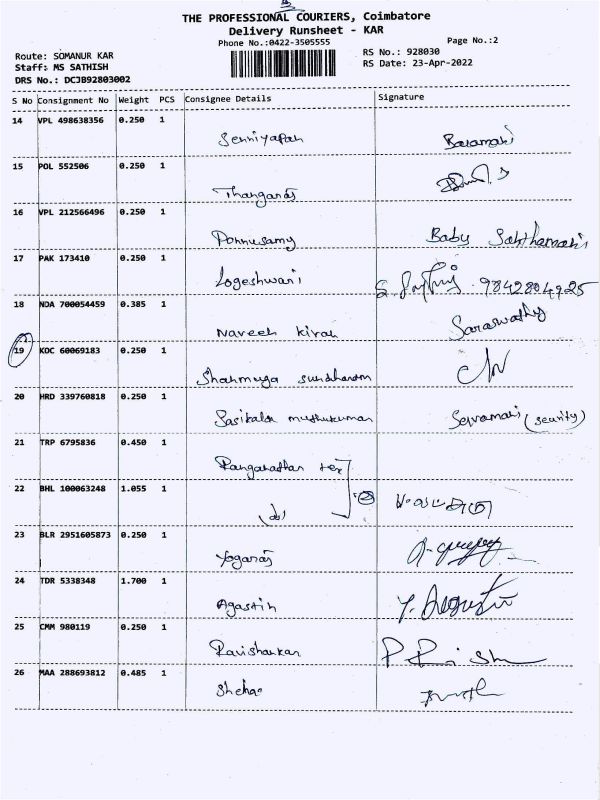 THE PROFESSIONAL COURIERS, Coimbatore
Delivery Runsheet - KAR
Phone No.:0422-3505555
Page No.:2
Route: SOMANUR KAR
RS No.: 928030
Staff: MS SATHISH
RS Date: 23-Apr-2022
DRS No.: DCJB92803002
S No Consignment No Weight PCS Consignee Details Signature
14 VPL 498638356 0.250 1
Senniyapan
15 POL 552506 0.250 1
Thangaraj
16 VPL 212566496 0.250 1
Ponnusamy Baby
17 PAK 173410 0.250 1
Logeshwari 9842804925
18 NDA 700054459 0.385 1
Naveen Kiran Saraswathy
19 KOC 60069183 0.250 1
Shanmuga sundharam
20 HRD 339760818 0.250 1
Sasikala muthukumar
21 TRP 6795836 0.450 1
Ranganathan tex
22 BHL 100063248 1.055 1
23 BLR 2951605873 0.250 1
Yogaraj
24 TDR 5338348 1.700 1
Agastin
25 CMM 980119 0.250 1
Ravishankar
26 MAA 288693812 0.485 1